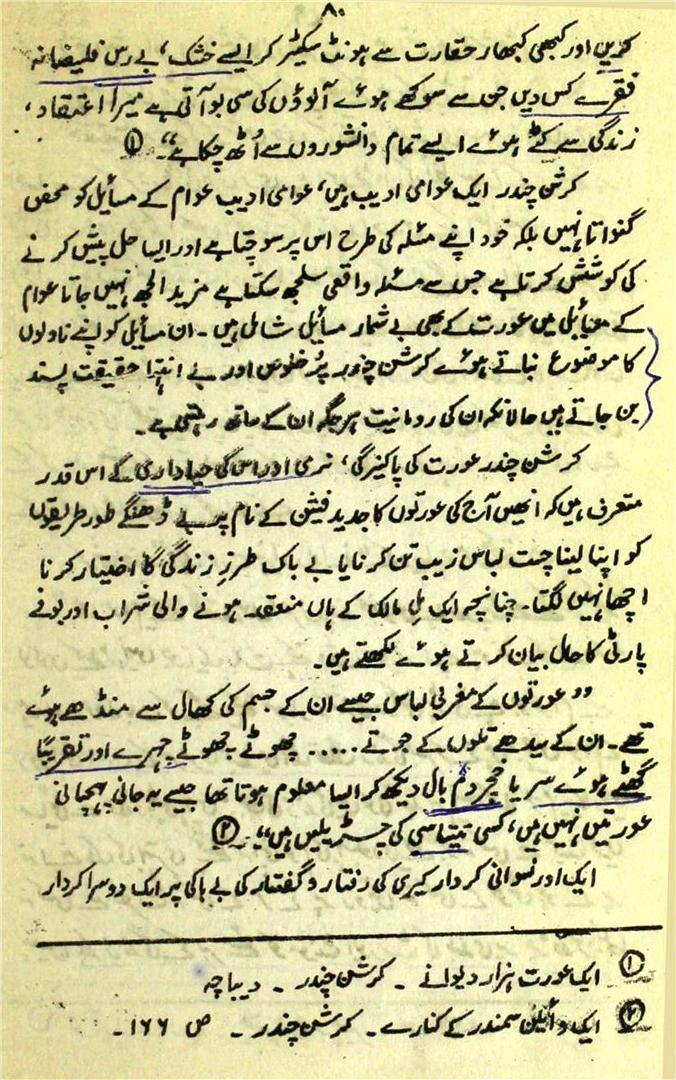 ۸۰
کریں اور کبھی کبھار حقارت سے ہونٹ سکیڑ کر ایسے خشک، بے رس فلیضانہ
فقرے کس دیں جن سے سوکھے ہوئے آلوؤں کی سی بو آتی ہے میرا اعتقاد،
زندگی سے کٹے ہوئے ایسے تمام دانشوروں سے اُٹھ چکا ہے“۔ ①
کرشن چندر ایک عوامی ادیب ہیں، عوامی ادیب عوام کے مسائل کو محض
گنواتا نہیں بلکہ خود اپنے مسئلہ کی طرح اس پر سوچتا ہے اور ایسا حل پیش کرنے
کی کوشش کرتا ہے جس سے مسئلہ واقعی سلجھ سکتا ہے مزید الجھ نہیں جاتا عوام
کے مسائل میں عورت کے بھی بے شمار مسائل شامل ہیں۔ ان مسائل کو اپنے ناولوں
کا موضوع بناتے ہوئے کرشن چندر پُر خلوص اور بے انتہا حقیقت پسند
بن جاتے ہیں حالانکہ ان کی رومانیت ہر جگہ ان کے ساتھ رہتی ہے۔
کرشن چندر عورت کی پاکیزگی، نرمی اور اس کی حیاداری کے اس قدر
معترف ہیں کہ انھیں آج کی عورتوں کا جدید فیشن کے نام پر بے ڈھنگے طور طریقوں
کو اپنا لینا چست لباس زیب تن کرنا یا بے باک طرزِ زندگی کا اختیار کرنا
اچھا نہیں لگتا۔ چنانچہ ایک مِل مالک کے ہاں منعقد ہونے والی شراب اور بونے
پارٹی کا حال بیان کرتے ہوئے لکھتے ہیں۔
”عورتوں کے مغربی لباس جیسے ان کے جسم کی کھال سے منڈھے ہوئے
تھے۔ ان کے سیدھے تلوں کے جوتے ..... چھوٹے چھوٹے چہرے اور تقریباً
گھٹے ہوئے سر یا خچر دُم بال دیکھ کر ایسا معلوم ہوتا تھا جیسے یہ جانی پہچانی
عورتیں نہیں ہیں، کسی کی چڑیلیں ہیں“۔ ②
ایک اور نسوانی کردار کیری کی رفتار و گفتار کی بے باکی پر ایک دوسرا کردار
① ایک عورت ہزار دیوانے ۔ کرشن چندر ۔ دیباچہ
② ایک وائلن سمندر کے کنارے ۔ کرشن چندر ۔ ص ۱۶۶ ۔